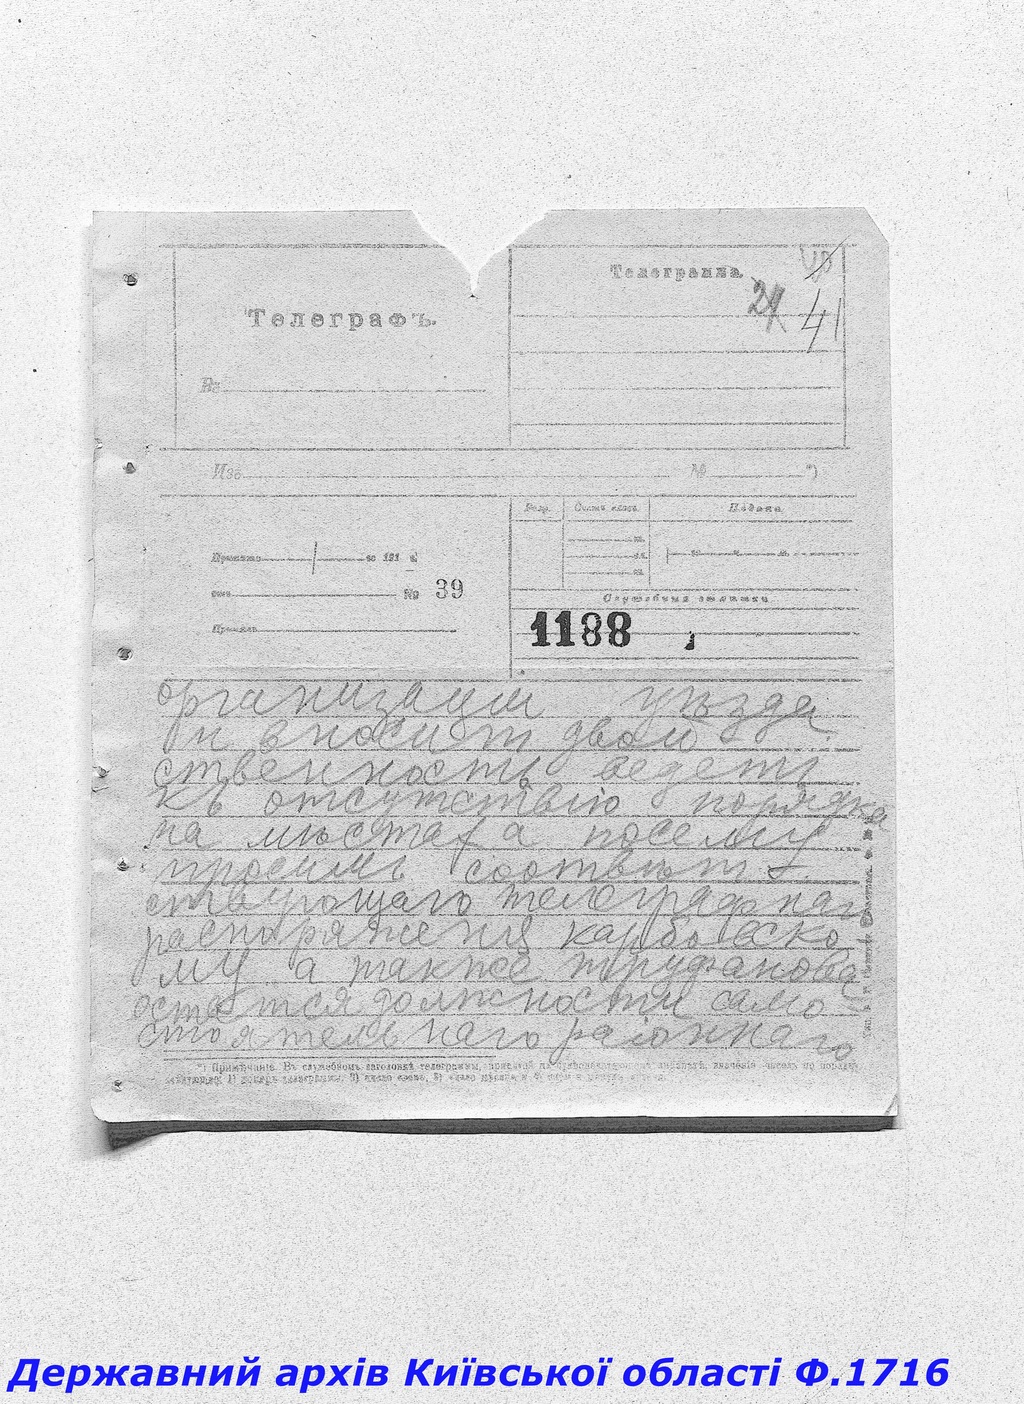 Телеграмма.
21
41
Телеграфъ.
Въ
Изъ № *)
Разр. Счетъ словъ. Подана
Принята го 191 г.
№ 39
Принялъ
Служебныя отмѣтки.
1188
организаціи уѣзда
и вносит двой
ственность ведетъ
къ отсутствію порядка
на мѣстах а посему
просимъ соотвѣт
ствующаго телеграфнаго
распоряженія карбовско
му а также труфанова
остается должности само
стоятельнаго районнаго
*) Примѣчаніе. Въ служебномъ заголовкѣ телеграммы,
Державний архів Київської області Ф.1716